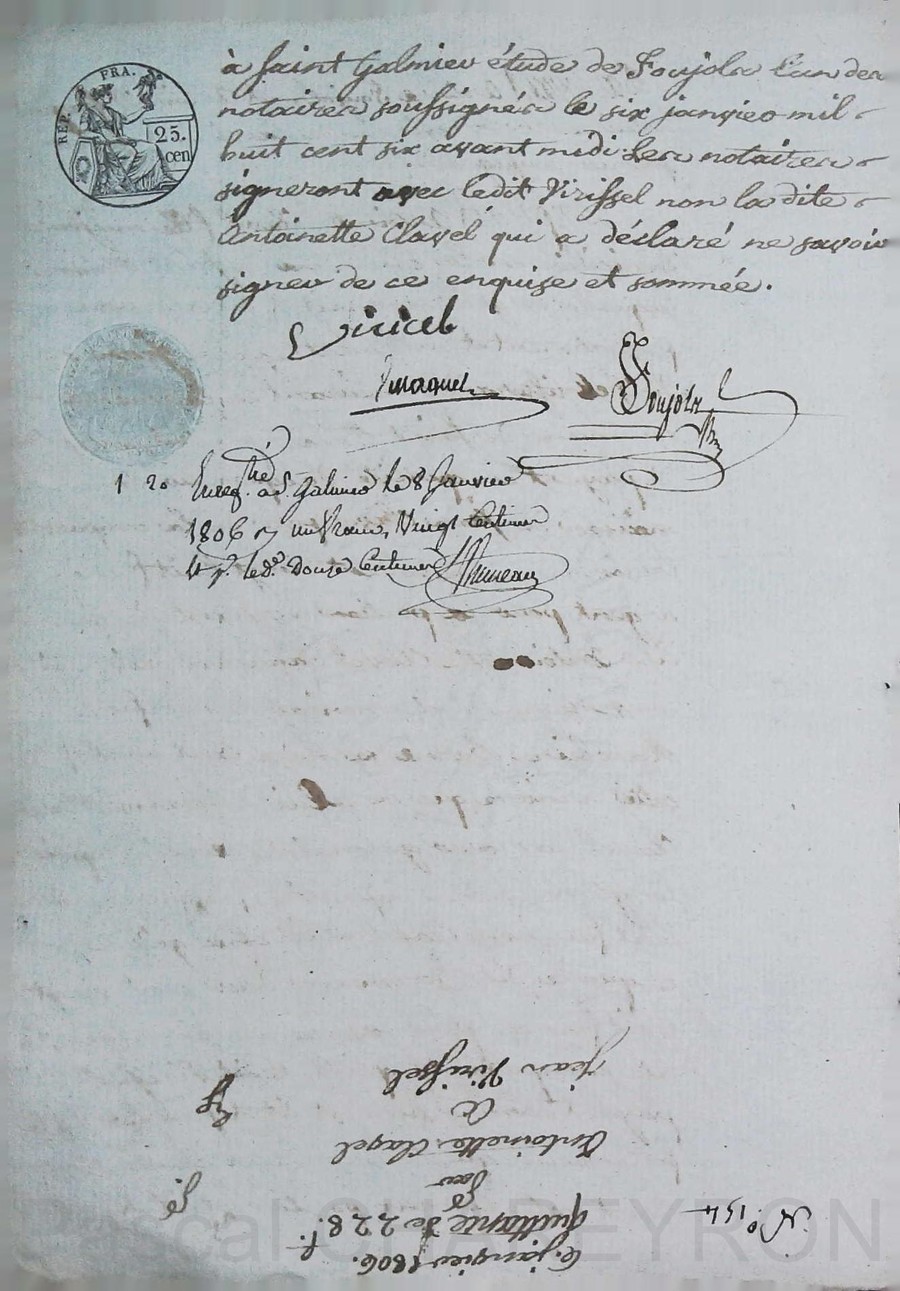 REP. FRA.
25.
cen
à Saint Galmier étude de Foujols l'un des
notaires soussignés le six janvier mil
huit cent six avant midi. Les notaires
signeront avec ledit Virissel non la dite
Antoinette Clavel qui a déclaré ne savoir
signer de ce enquise et sommée.
Viricel
Foujols
1 20
Enreg.tré à St. Galmier le 8 Janvier
1806 un franc, Vingt Centimes
Douze Centimes
6. janvier 1806.
quittance de 228 f.
par
Antoinette Clavel
à
jean Virissel
N.o 154
Pascal CHABEYRON